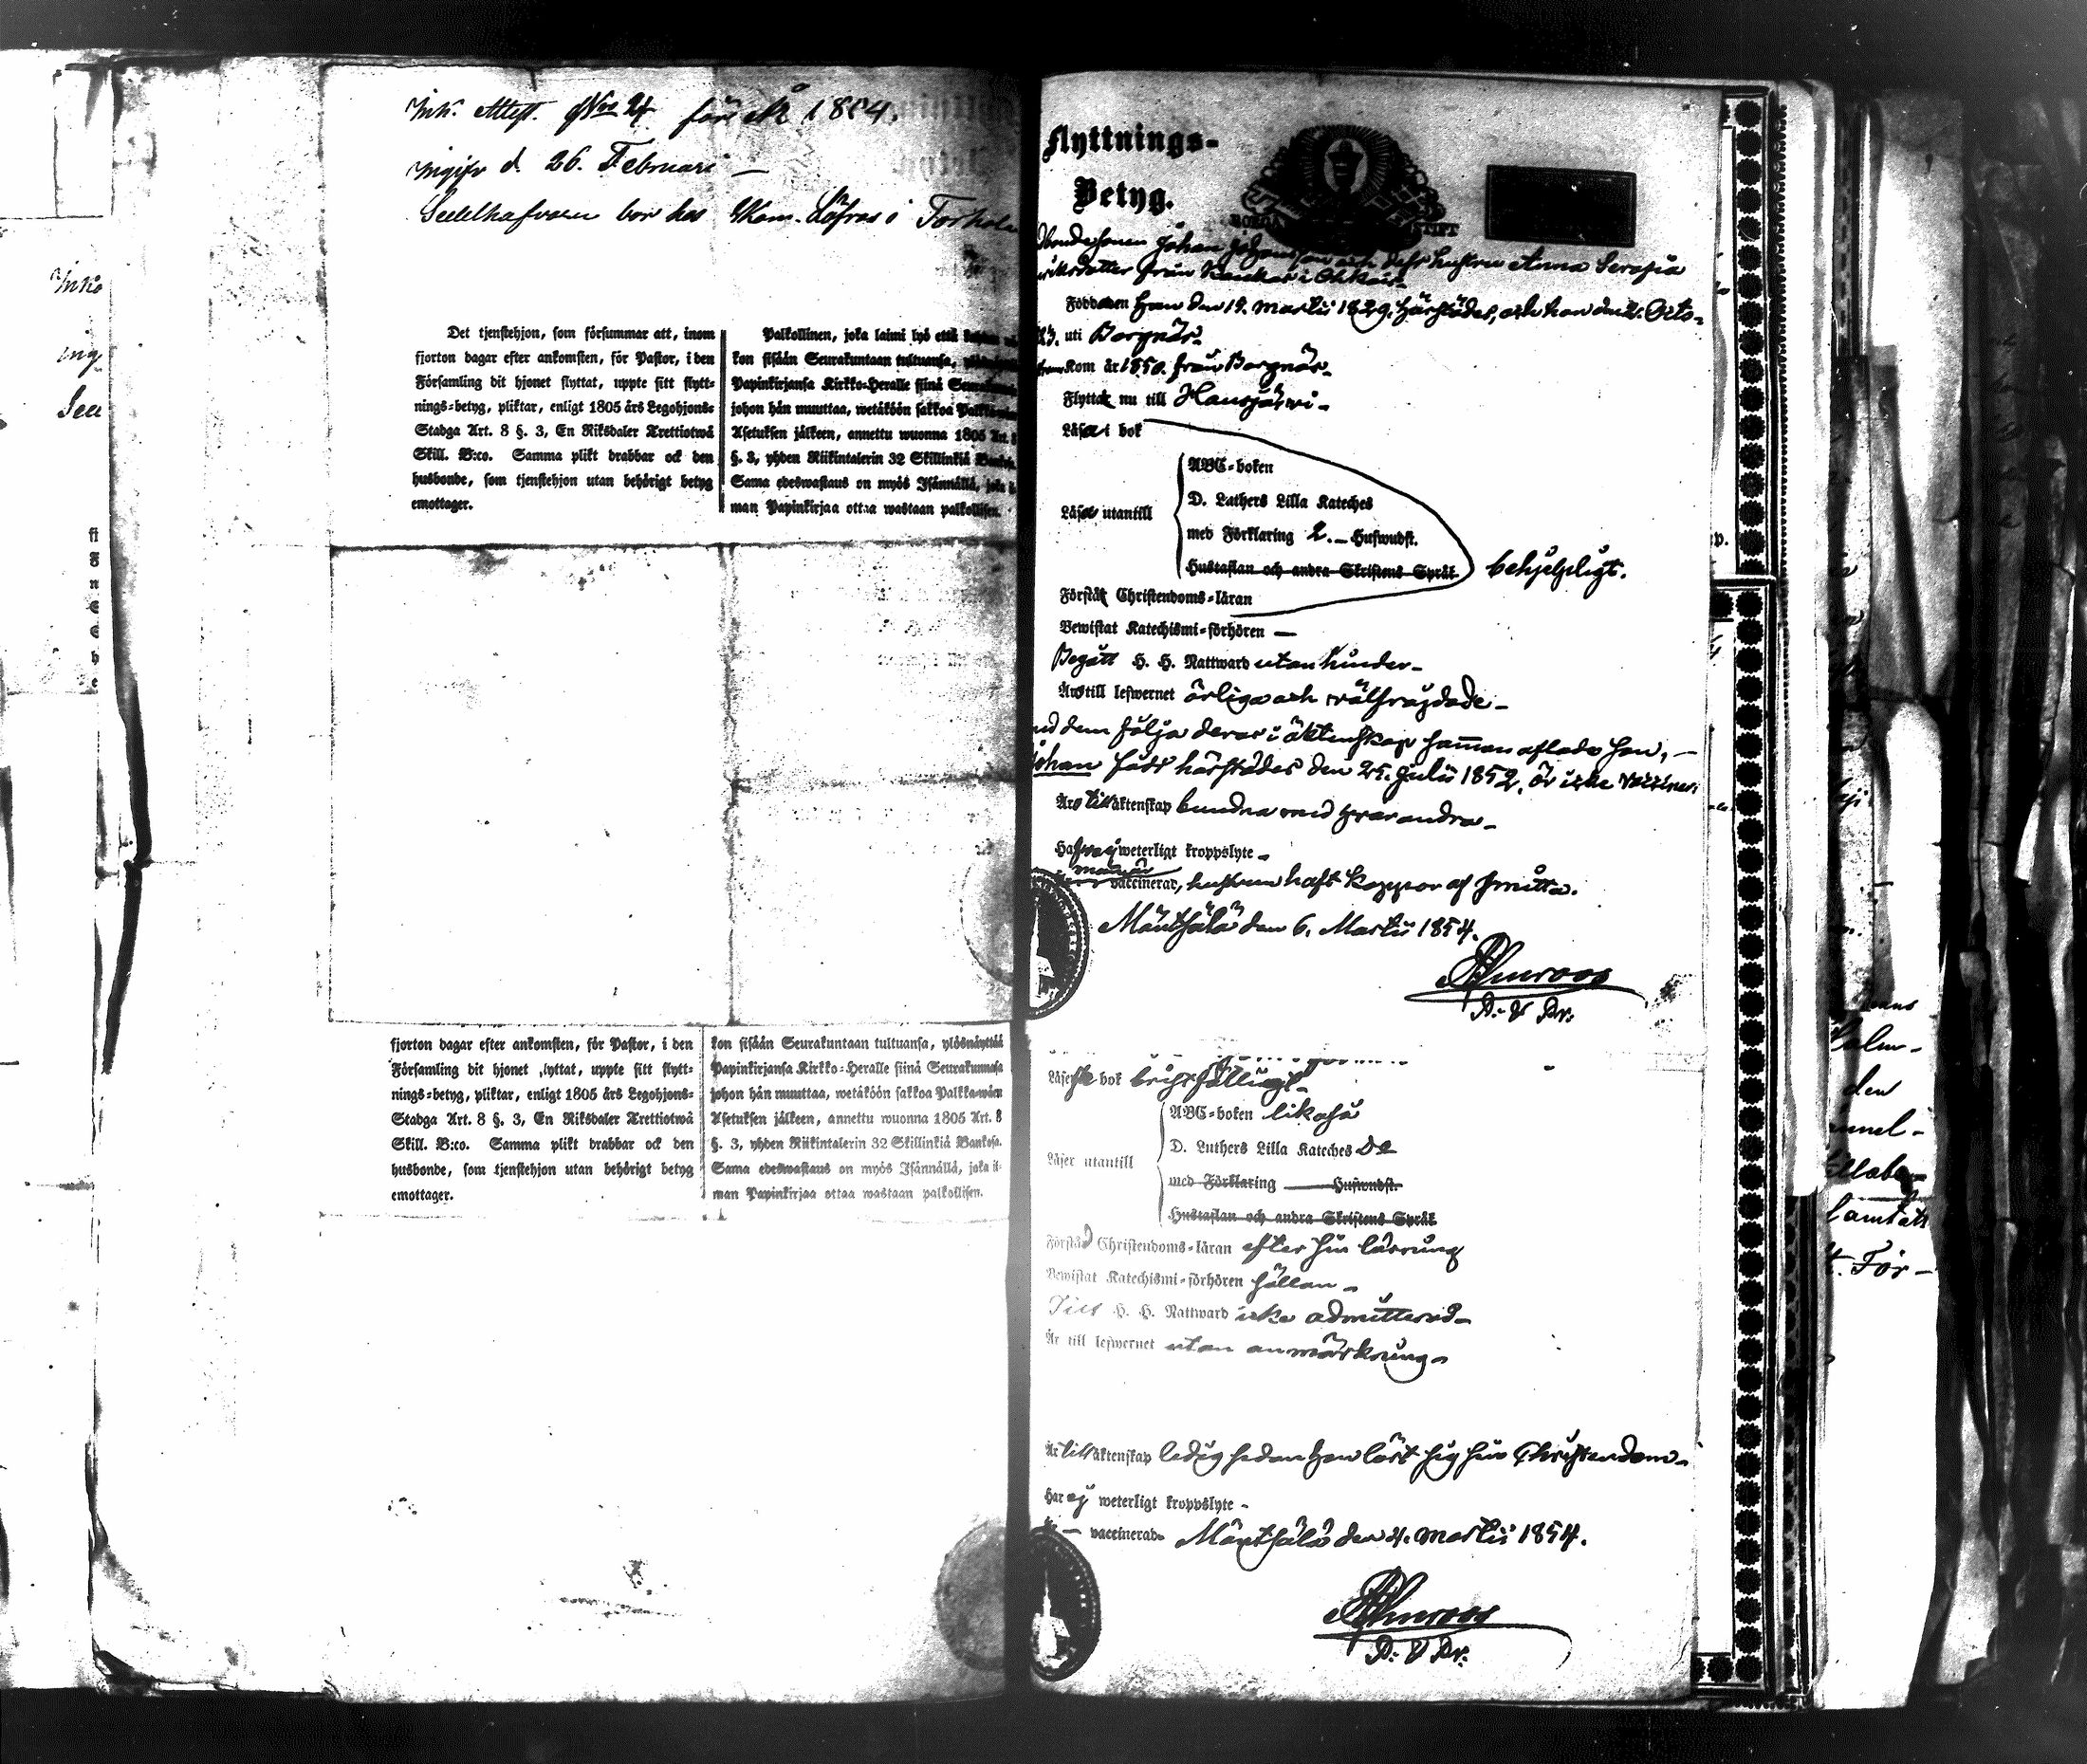 Ink. Attest. Nro 24 för år 1854.
ingifv d. 26. Februari —
bor hos i
Det tjenstehjon, som försummar att, inom
fjorton dagar efter ankomsten, för Pastor, i den
Församling dit hjonet flyttat, uppte sitt flytt-
nings-betyg, pliktar, enligt 1805 års Legohjons-
Stadga Art. 8 §. 3, En Riksdaler Trettiotwå
Skill. B:co. Samma plikt drabbar ock den
husbonde, som tjenstehjon utan behörigt betyg
emottager.
Palkollinen, joka laimi lyö että
kon sisään Seurakuntaan tultuansa,
Papinkirjansa Kirkko-Heralle siinä
johon hän muuttaa, wetäköön sakkoa
Asetuksen jälkeen, annettu wuonna 1805 Art. 8
§. 3, yhden Riikintalerin 32 Skillinkiä
Sama edeswastaus on myös Isännällä, joka
man Papinkirjaa ottaa wastaan palkollisen.
fjorton dagar efter ankomsten, för Pastor, i den
Församling dit hjonet lyttat, uppte sitt flytt-
nings-betyg, pliktar, enligt 1805 års Legohjons-
Stadga Art. 8 §. 3, En Riksdaler Trettiotwå
Skill. B:co. Samma plikt drabbar ock den
husbonde, som tjenstehjon utan behörigt betyg
emottager.
kon sisään Seurakuntaan tultuansa, ylösnäyttää
Papinkirjansa Kirkko-Heralle siinä Seurakunnasa
johon hän muuttaa, wetäköön sakkoa Palkka-wäen
Asetuksen jälkeen, annettu wuonna 1805 Art. 8
§. 3, yhden Riikintalerin 32 Skillinkiä Bankosa.
Sama edeswastaus on myös Isännällä, joka il-
man Papinkirjaa ottaa wastaan palkollisen.
Flyttnings-
Betyg.
BORGÅ STIFT
Johan Johansson och dess hustru Anna Serafia
från i
Född han den 19. Martii 1829. härstädes, och hon den 21. Octo-
uti Borgnäs.
Kom år 1850. från Borgnäs.
Flytta nu till Hausjärwi.
Läsa i bok
Läsa utantill
ABC-boken
D. Luthers Lilla Kateches
med Förklaring 2. — Hufwudst.
Hustaflan och andra Skriftens Språk
behjelpligt.
Förstå Christendoms-läran
Bewistat Katechismi-förhören —
Begått H. H. Nattward utan hinder.
Äro till lefwernet ärliga och wälfrägdade.
dem följa deras i äktenskap samman aflade son, —
Johan född härstädes den 25. Julii 1852, är icke vaccinerad
Äro till äktenskap bundna med hvarandra.
Hafwa ej weterligt kroppslyte.
mannen vaccinerad, hustrun haft koppor af smitta.
Mäntsälä den 6. Martii 1854.
D. V. Pr.
Läser i bok bristfälligt.
ABC-boken likaså
Läser utantill
D. Luthers Lilla Kateches do
med Förklaring — Hufwudst.
Hustaflan och andra Skriftens Språk
Förstå Christendoms-läran efter sin läsning
Bewistat Katechismi-förhören sällan.
Till H. H. Nattward icke admitterad.
Är till lefwernet utan anmärkning.
Är till äktenskap ledig sedan han lärt sig sin Christendom.
Har ej weterligt kroppslyte.
Är — vaccinerad. Mäntsälä den 4. Martii 1854.
D. V. Pr.